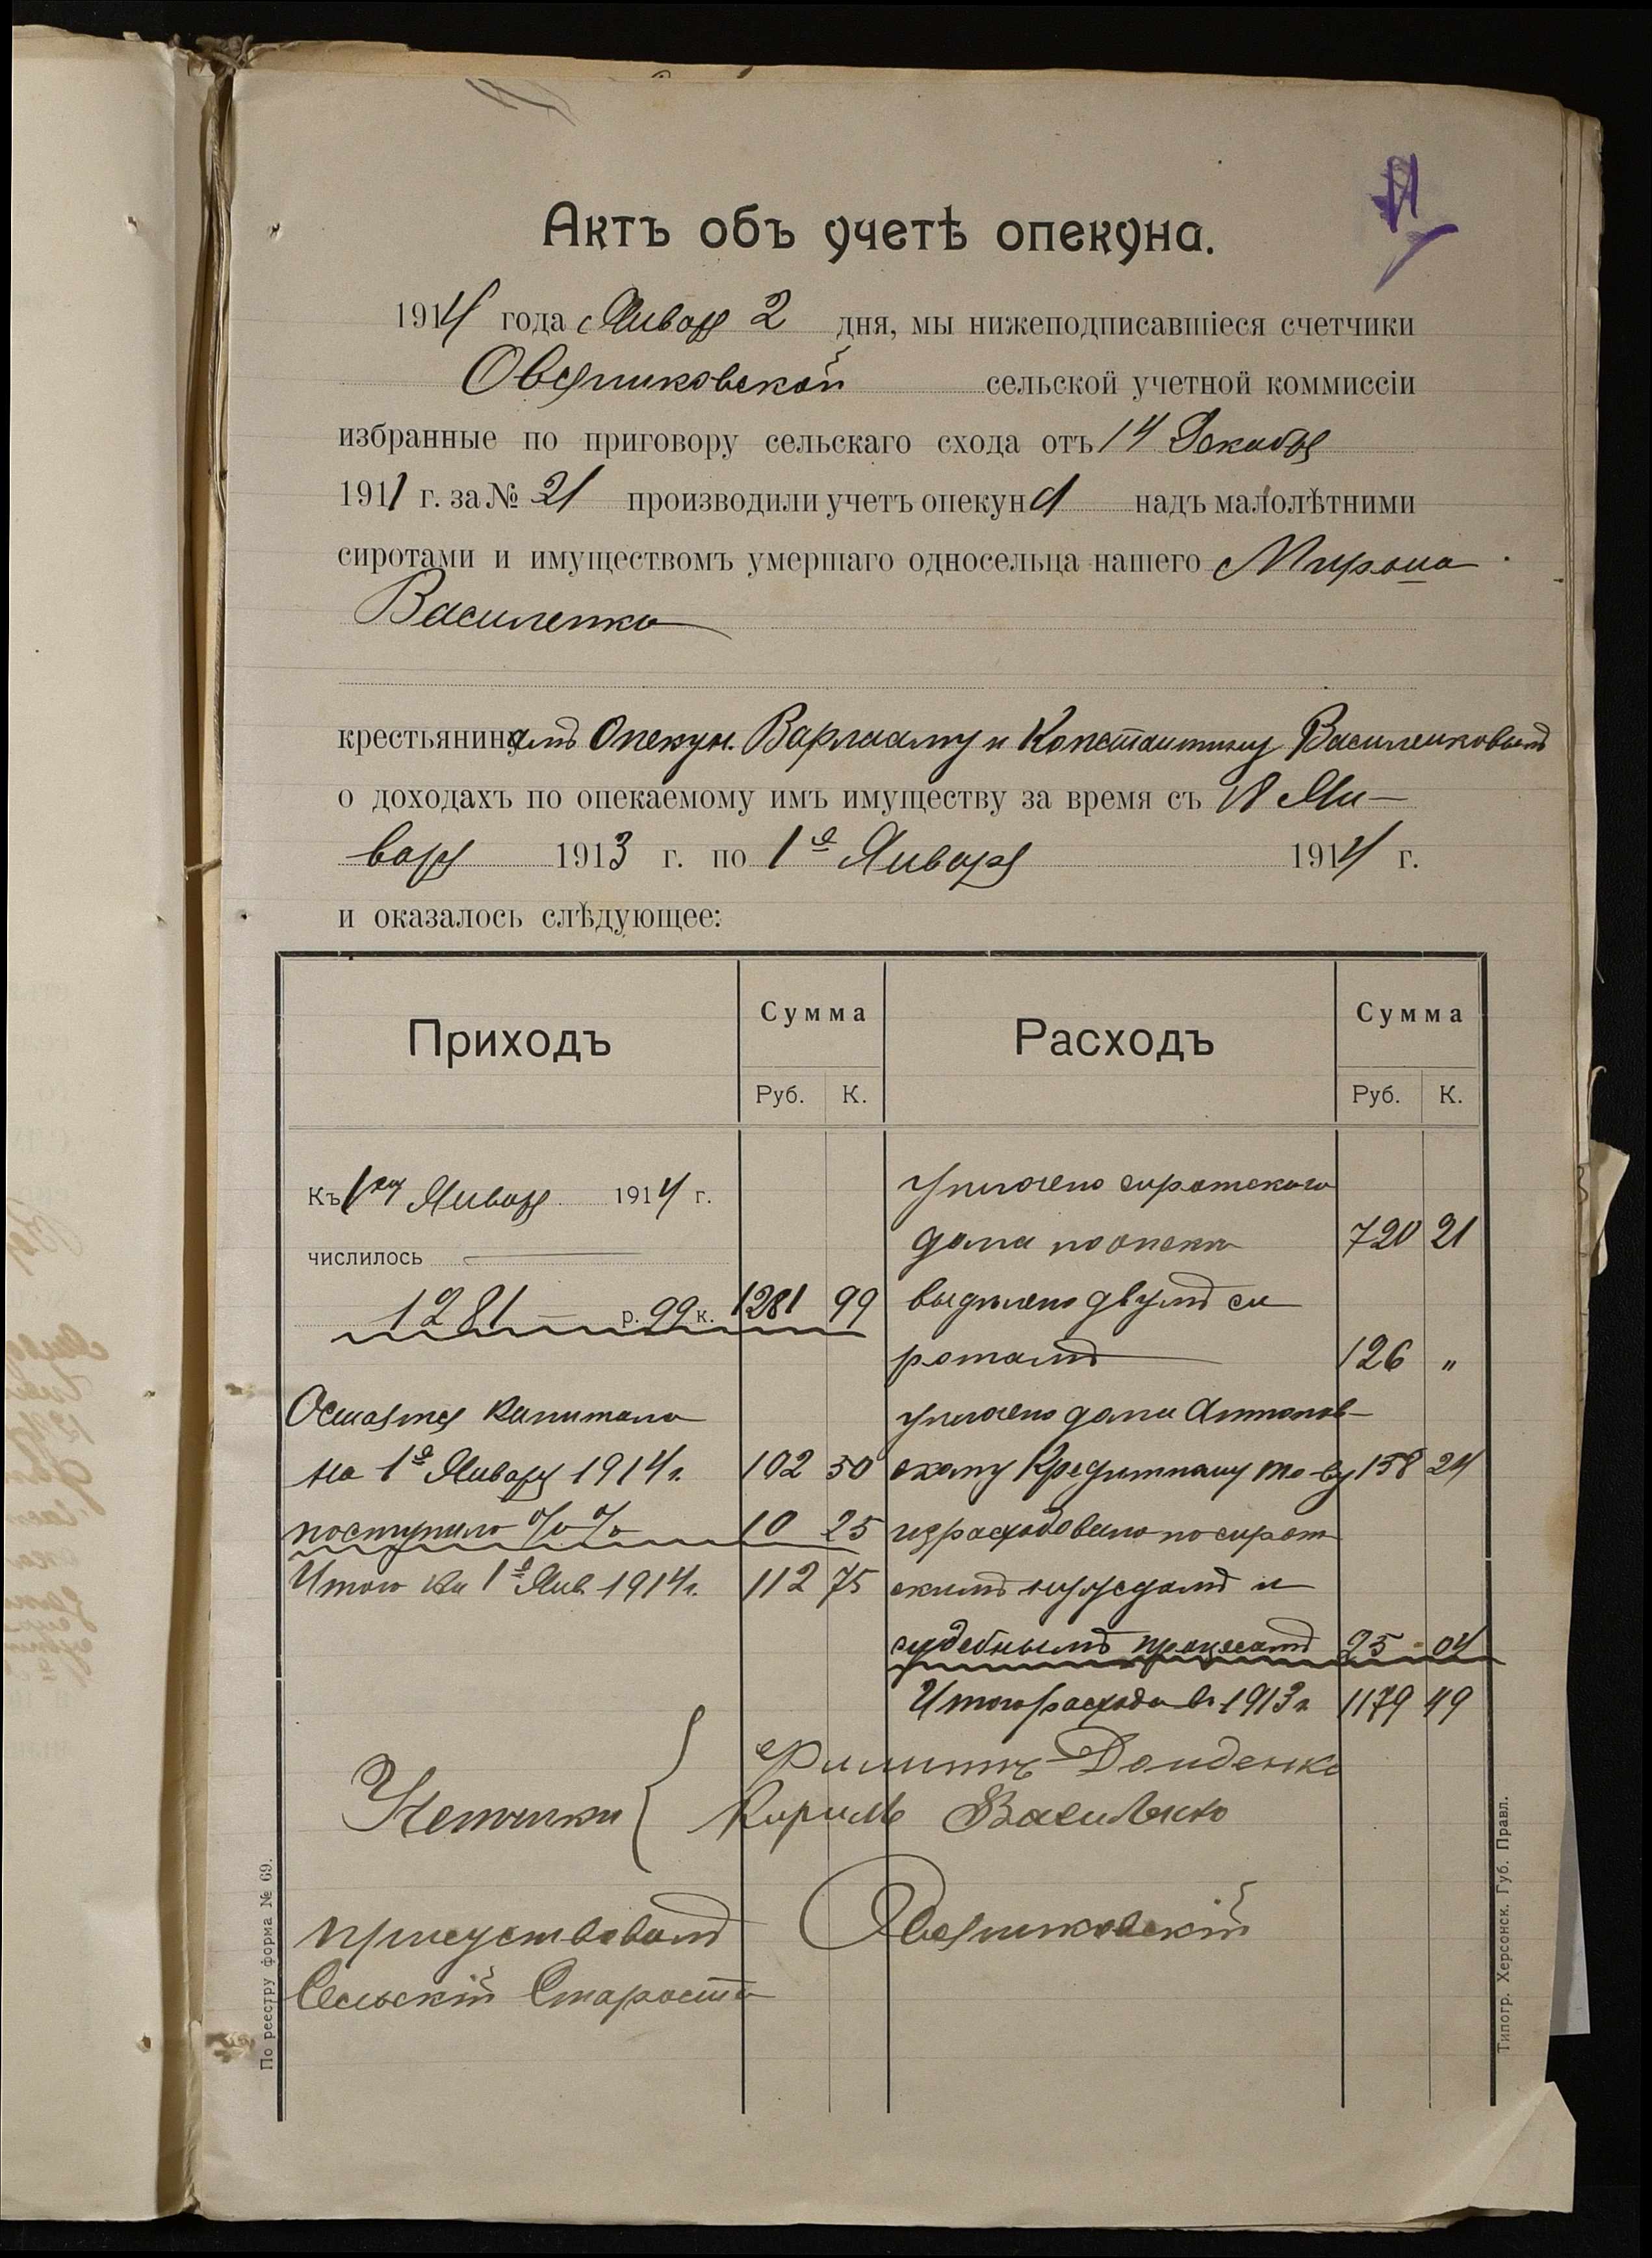 Актъ объ учетѣ опекуна.
1914 года Января 2 дня, мы нижеподписавшіеся счетчики
Овсяниковской сельской учетной коммиссіи
избранные по приговору сельскаго схода отъ 14 Декабря
1911 г. за № 21 производили учетъ опекуна надъ малолѣтними
сиротами и имуществомъ умершаго односельца нашего Мирона
Василенко
крестьянинамъ Опекун. Варлааму и Константину Василенковымъ
о доходахъ по опекаемому имъ имуществу за время съ 18 Ян-
варя 1913 г. по 1е Января 1914 г.
и оказалось слѣдующее:
Приходъ Сумма Расходъ Сумма
Руб. К. Руб. К.
Къ 1му Января 1914 г. Уплочено сиротского
числилось долга по опеки 720 21
1281 р. 99 к. 1281 99 выдѣлено двумъ си
ротамъ 126 "
Остается капитала уплочено долги Антонов-
на 1е Января 1914 г. 102 50 скому Кредитному то-ву 158 24
поступило %% 10 25 израсходовано по сирот
Итого на 1е Янв. 1914 г. 112 75 скимъ нуждамъ и
судебнымъ процесамъ 25 04
Итого расхода въ 1913 г. 1179 49
Учетчики Филиппъ
Кирилъ Василенко
присуствовалъ Овсяниковскій
Сельскій Староста
По реестру форма № 69.
Типогр. Херсонск. Губ. Правл.